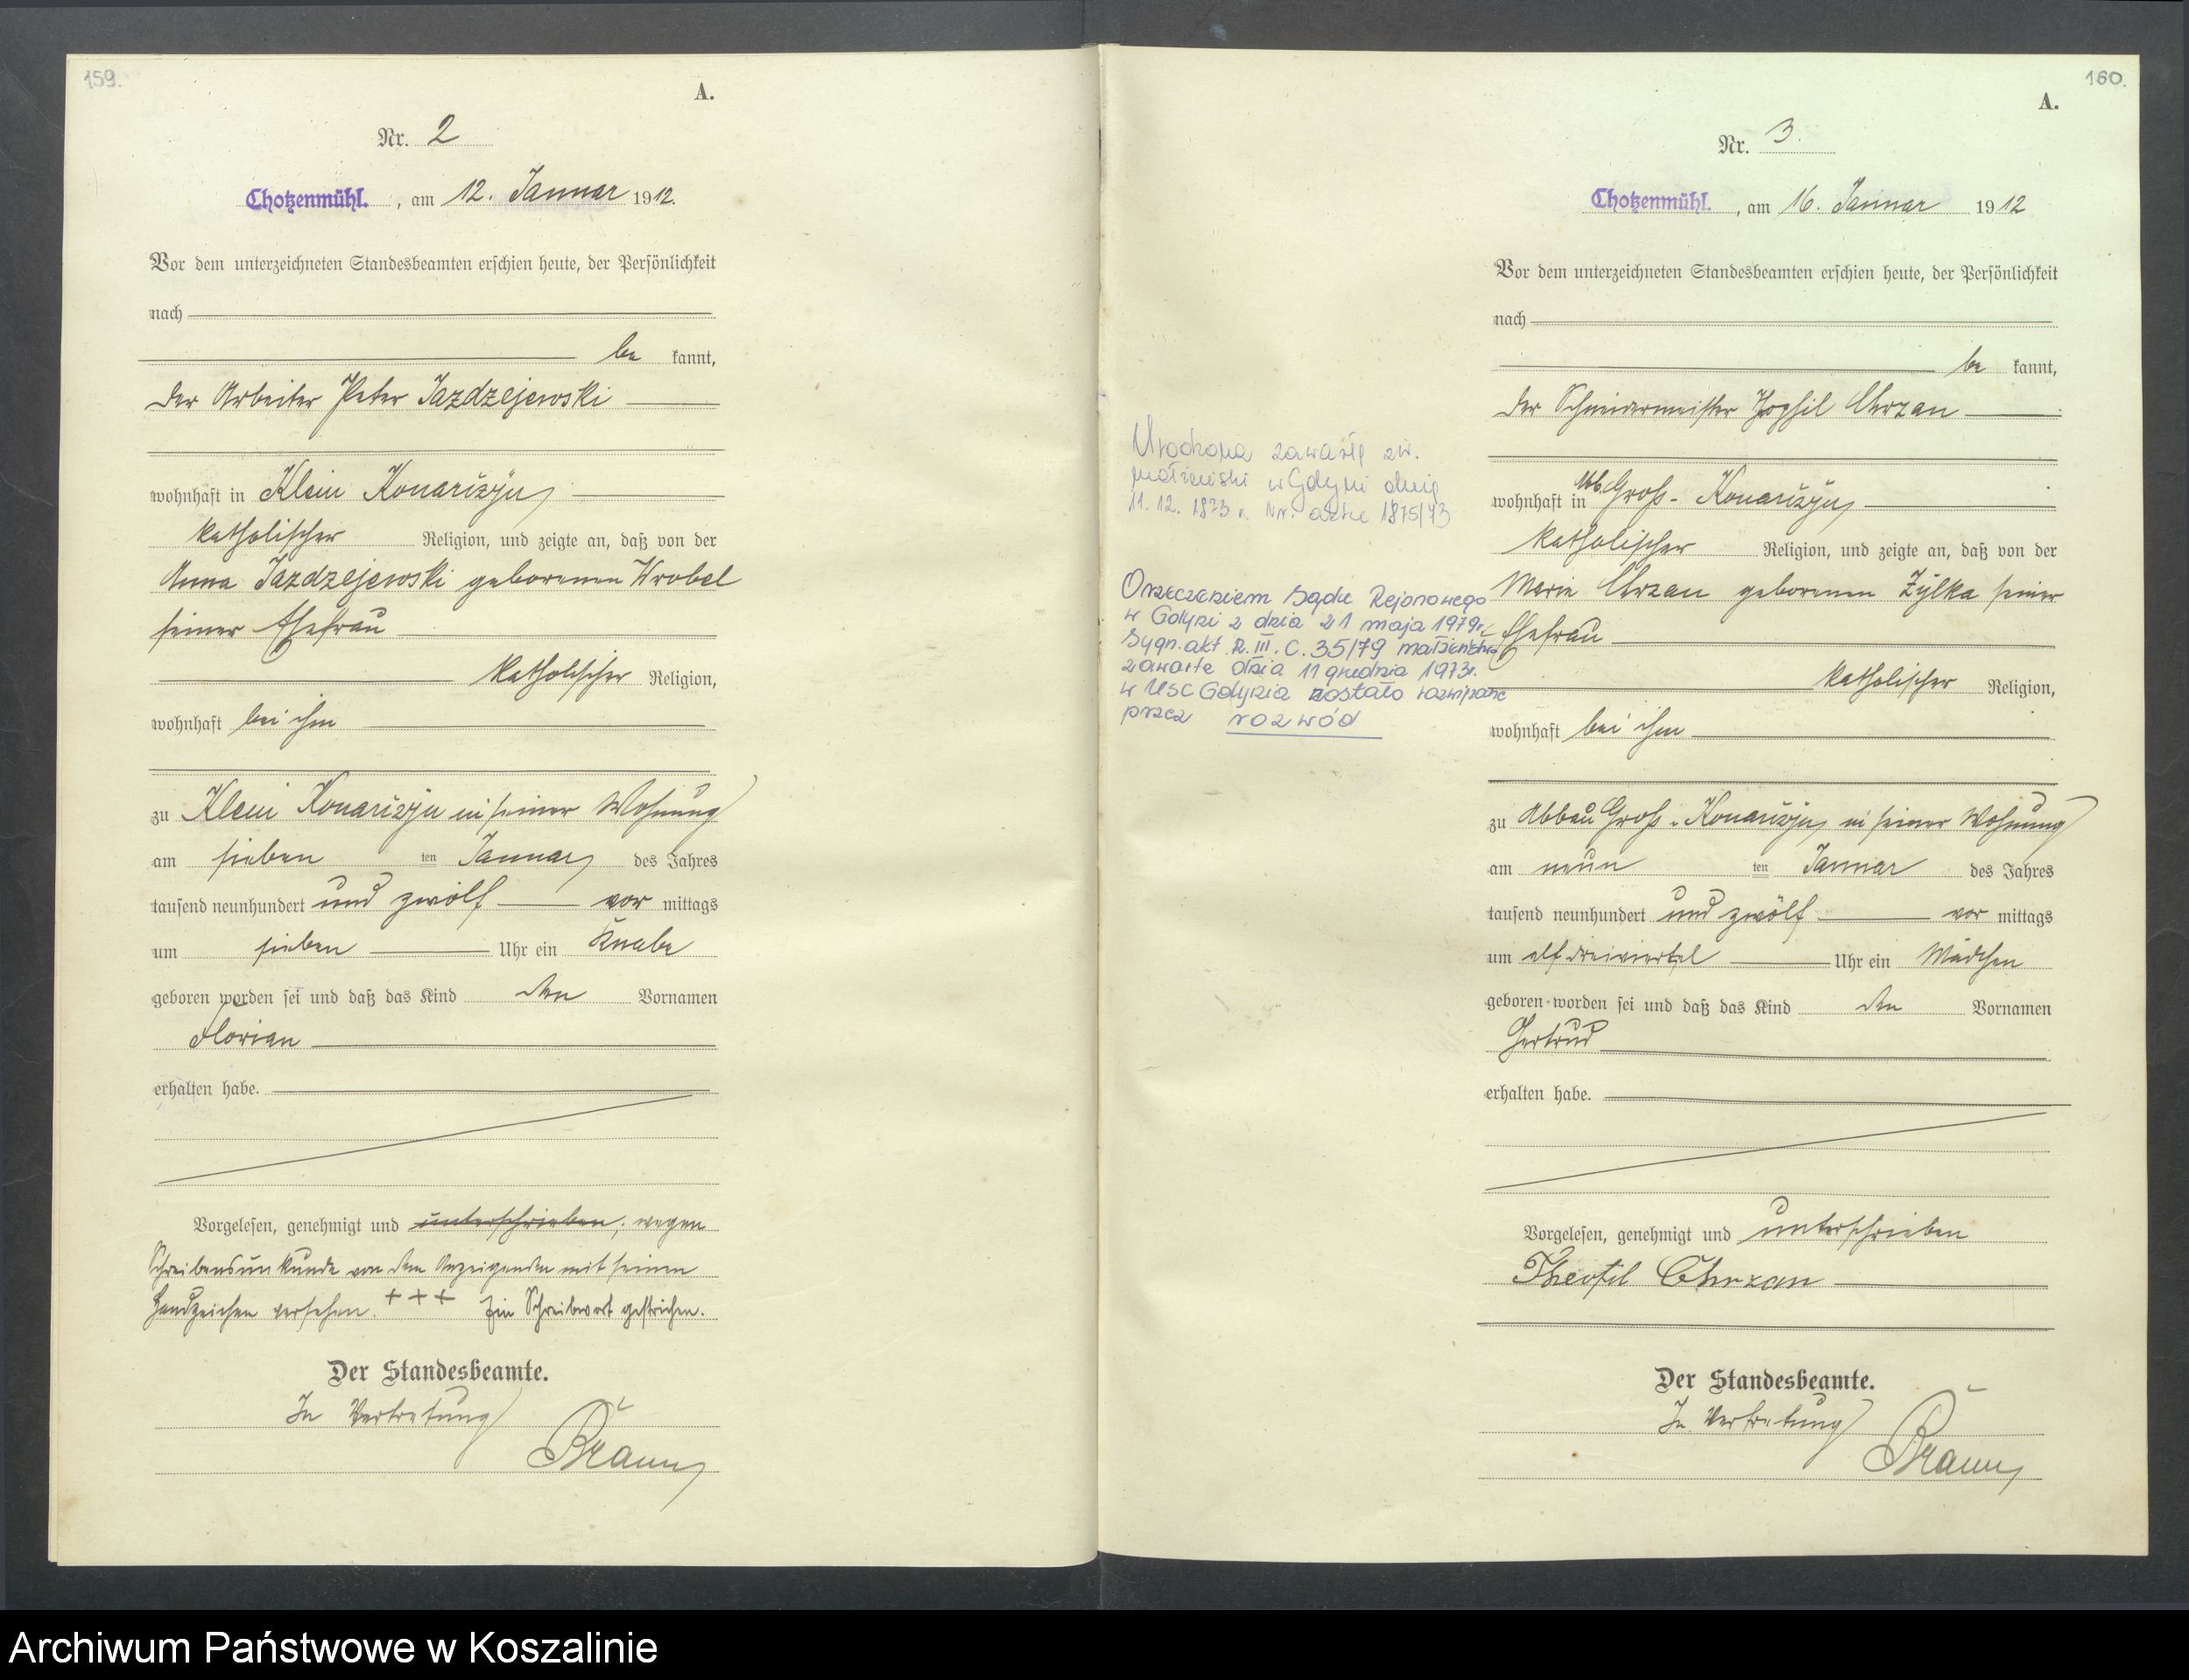 159.
A.
Nr. 2
Chotzenmühl. , am 12. Januar 1912.
Vor dem unterzeichneten Standesbeamten erschien heute, der Persönlichkeit
nach
be kannt,
der Arbeiter Peter Jazdzejewski
wohnhaft in Klein Konarczyn
katholischer Religion, und zeigte an, daß von der
Anna Jazdzejewski geborenen Wrobel
seiner Ehefrau
katholischer Religion,
wohnhaft bei ihm
zu Klein Konarczyn in seiner Wohnung
am sieben ten Januar des Jahres
tausend neunhundert und zwölf vor mittags
um sieben Uhr ein Knabe
geboren worden sei und daß das Kind den Vornamen
Florian
erhalten habe.
Vorgelesen, genehmigt und unterschrieben, wegen
Schreibensunkunde von dem Anzeigenden mit seinen
Handzeichen versehen. + + + Ein Schreibwort gestrichen.
Der Standesbeamte.
In Vertretung
Braun
160.
A.
Nr. 3.
Chotzenmühl. , am 16. Januar 1912
Vor dem unterzeichneten Standesbeamten erschien heute, der Persönlichkeit
nach
be kannt,
der Schneidermeister Theophil Chrzan
wohnhaft in Abb. Groß-Konarczyn
katholischer Religion, und zeigte an, daß von der
Maria Chrzan geborenen Zylka seiner
Ehefrau
katholischer Religion,
wohnhaft bei ihm
zu Abbau Groß-Konarczyn in seiner Wohnung
am neun ten Januar des Jahres
tausend neunhundert und zwölf vor mittags
um elf dreiviertel Uhr ein Mädchen
geboren worden sei und daß das Kind den Vornamen
Gertrud
erhalten habe.
Vorgelesen, genehmigt und unterschrieben
Theofil Chrzan
Der Standesbeamte.
In Vertretung
Braun
Urodzona zawarła zw.
małżeński w Gdyni dnia
11. 12. 1973 r. Nr. aktu 1875/73
Orzeczeniem Sądu Rejonowego
w Gdyni z dnia 21 maja 1979r.
Sygn. akt R. III. C. 35/79 małżeństwo
zawarte dnia 11 grudnia 1973r.
w USC Gdynia zostało rozwiązane
przez rozwód
Archiwum Państwowe w Koszalinie